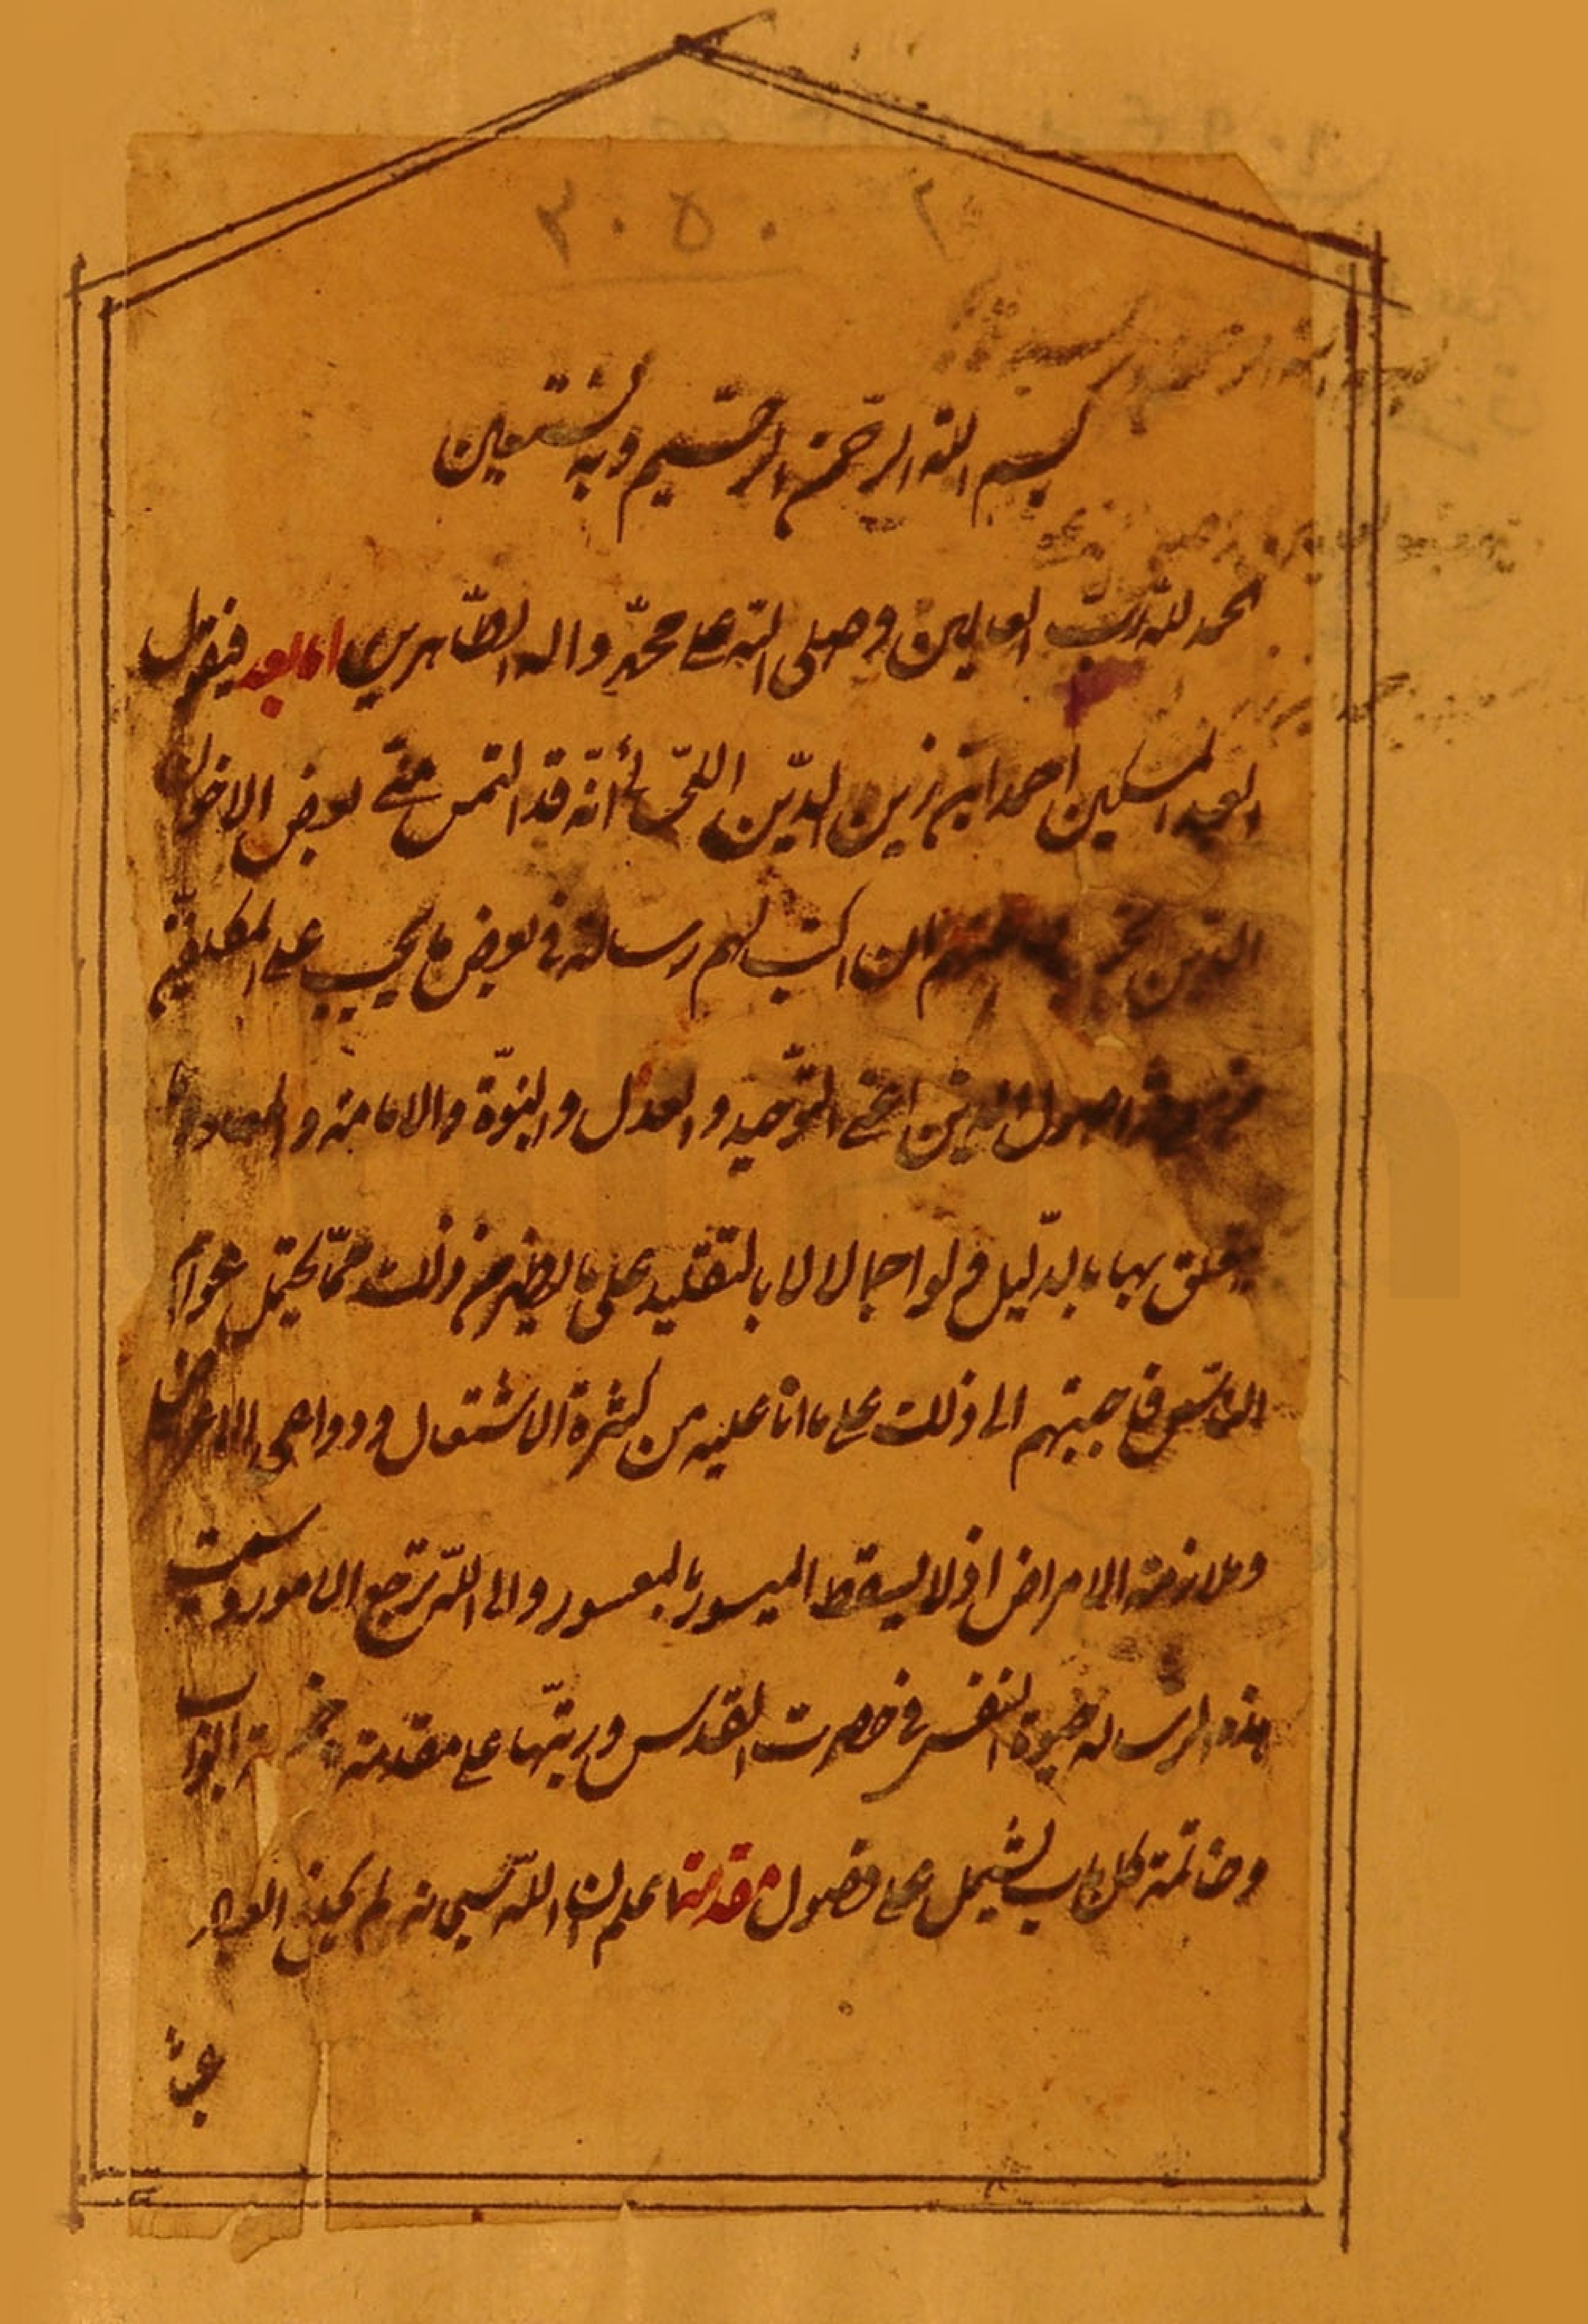 ٢٠٥٠
بسم الله الرحمن الرحيم وبه نستعين
الحمد لله رب العالمين وصلى الله على محمد واله الطاهرين اما بعد فيقول
العبد المسكين احمد ابن زين الدين اللحسائي انه قد التمس مني بعض الاخوان
الذين ان اكتب لهم رسالة في بعض ما يجب على المكلفين
من معرفة اصول الدين اعني التوحيد والعدل والنبوة والامامة والمعاد وما
يتعلق بها بالدليل ولو اجمالا لا بالتقليد على ما يظهر من ذلك مما يحتمل عوام
الناس فاجبتهم الى ذلك على ما انا عليه من كثرة الاشتغال ودواعي الاعراض
وملازمة الامراض اذ لا يسقط الميسور بالمعسور والى الله ترجع الامور وسميت
هذه الرسالة حيوة النفس في حضرت القدس ورتبتها على مقدمة وخمسة ابواب
وخاتمة كل باب يشتمل على فصول مقدمة اعلم ان الله سبحانه لم يخلق العباد
عبثا